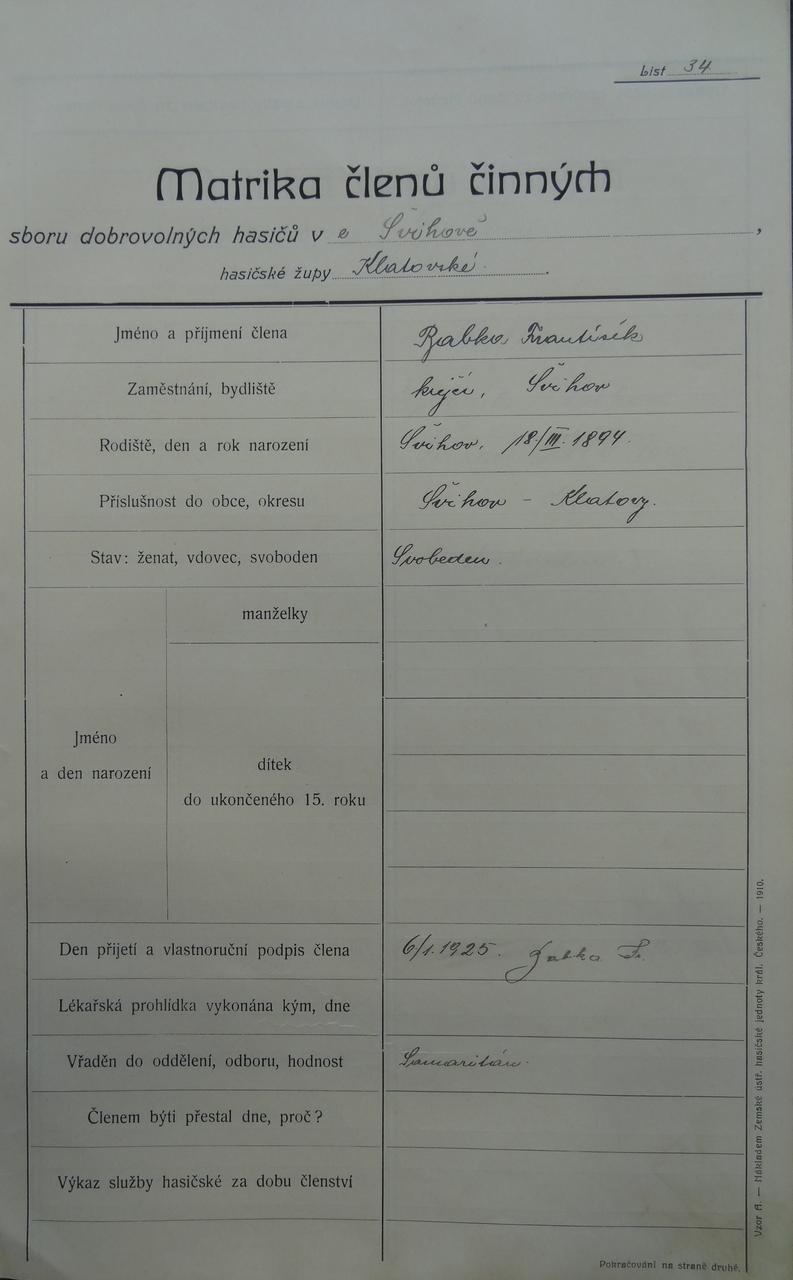 List 34
Matrika členů činných
sboru dobrovolných hasičů v e Švihově,
hasičské župy Klatovské.
Jméno a příjmení člena František
Zaměstnání, bydliště krejčí, Švihov
Rodiště, den a rok narození Švihov, 18/III. 1894.
Příslušnost do obce, okresu Švihov - Klatovy.
Stav: ženat, vdovec, svoboden Svoboden.
manželky
Jméno
a den narození
dítek
do ukončeného 15. roku
Den přijetí a vlastnoruční podpis člena 6/1. 1925.
Lékařská prohlídka vykonána kým, dne
Vřaděn do oddělení, odboru, hodnost Samaritán.
Členem býti přestal dne, proč?
Výkaz služby hasičské za dobu členství
Pokračování na straně druhé.
Vzor A. — Nákladem Zemské ústř. hasičské jednoty král. Českého. — 1910.